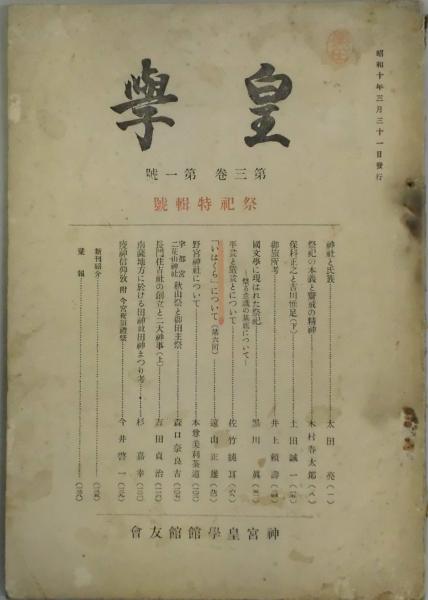 昭和十年三月三十一日發行
皇學
第三卷 第一號
祭祀特輯號
神社と民族……太田 亮(一)
祭祀の本義と齋戒の精神……木村春太郎
保科正之と吉川惟足(下)……土田誠一
御旅所考……井上賴壽
國文學に現はれた祭祀……黑川 眞
―祭る意識の基底について―
平賀と嚴瓮とについて……佐竹
「いはくら」について(第六回)……遠山正雄
野宮神社について
宇都宮二荒山神社 秋山祭と御田主祭……森口奈良吉
長門住吉社の創立と二大神事(上)……吉田貞治
南薩地方に於ける田神社田神まつり考……杉 嘉幸
疫神信仰攷 附 今宮夜須禮祭……今井啓一
新刊紹介
彙報
神宮皇學館館友會